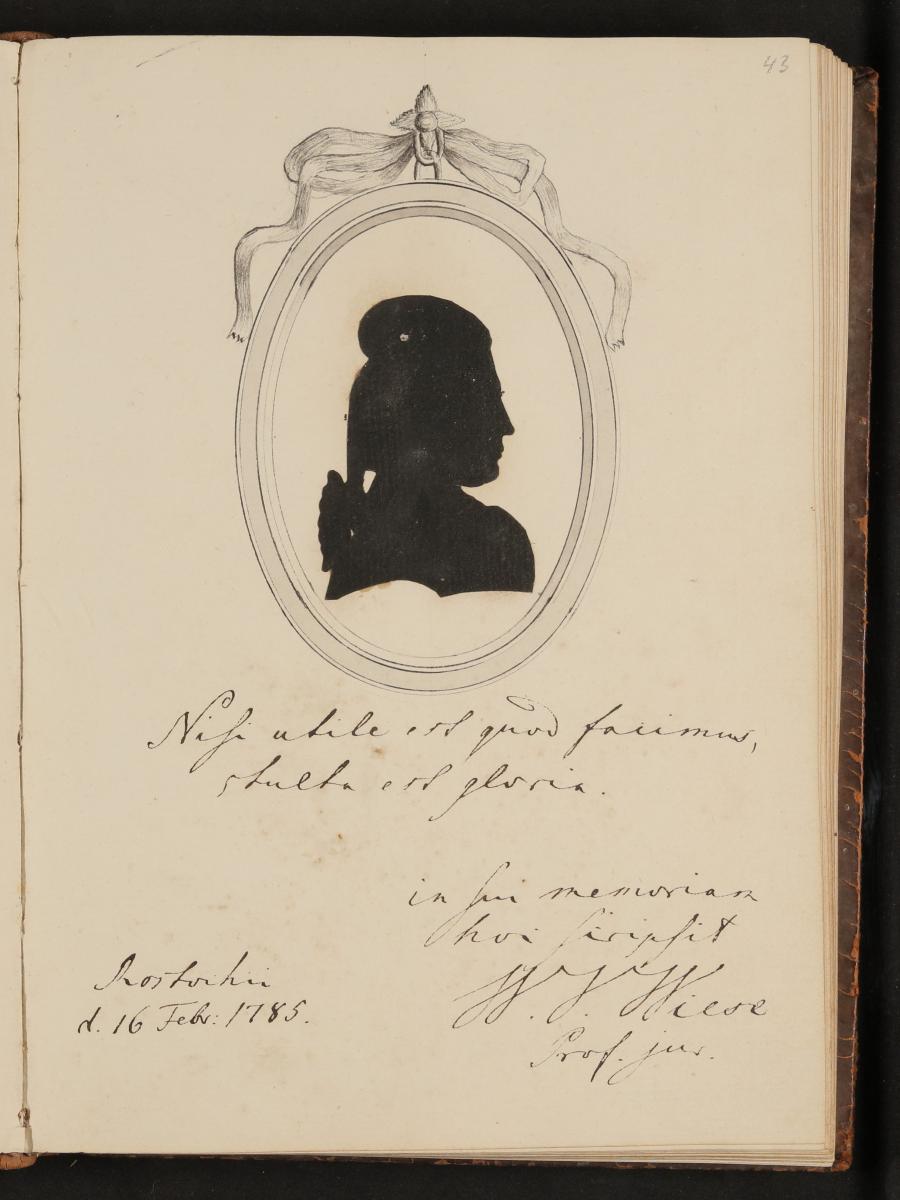 43
Nisi utile est quod facimus,
stulta est gloria.
in sui memoriam
hoc scripsit
Rostochii
W. V. Wiese
d. 16 Febr: 1785.
Prof. jur.